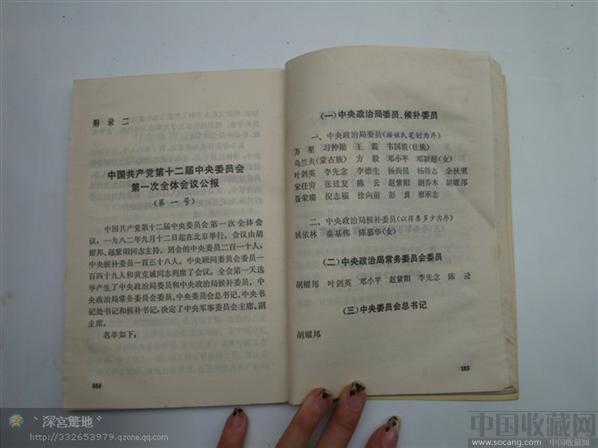 附录二
中国共产党第十二届中央委员会
第一次全体会议公报
(第一号)
中国共产党第十二届中央委员会第一次全体会
议,一九八二年九月十二日起在北京举行。会议由胡
耀邦、赵紫阳同志主持。到会的中央委员二百一十人,
中央候补委员一百三十八人。中央顾问委员会委员一
百四十九人和黄克诚同志列席了会议。全会第一天选
举产生了中央政治局委员和中央政治局候补委员,中
央政治局常务委员会委员,中央委员会总书记,中央书
记处书记和候补书记,决定了中央军事委员会主席、副
主席。
名单如下:
184
(一)中央政治局委员、候补委员
一、中央政治局委员(按姓氏笔划为序)
万里 习仲勋 王震 韦国清(壮族)
乌兰夫(蒙古族) 方毅 邓小平 邓颖超(女)
叶剑英 李先念 李德生 杨尚昆 杨得志 余秋里
宋任穷 张廷发 陈云 赵紫阳 胡乔木 胡耀邦
聂荣臻 倪志福 徐向前 彭真 廖承志
二、中央政治局候补委员(以得票多少为序)
姚依林 秦基伟 陈慕华(女)
(二)中央政治局常务委员会委员
胡耀邦 叶剑英 邓小平 赵紫阳 李先念 陈云
(三)中央委员会总书记
胡耀邦
185
http://332653979.qzone.qq.com
中国收藏网
www.socang.com